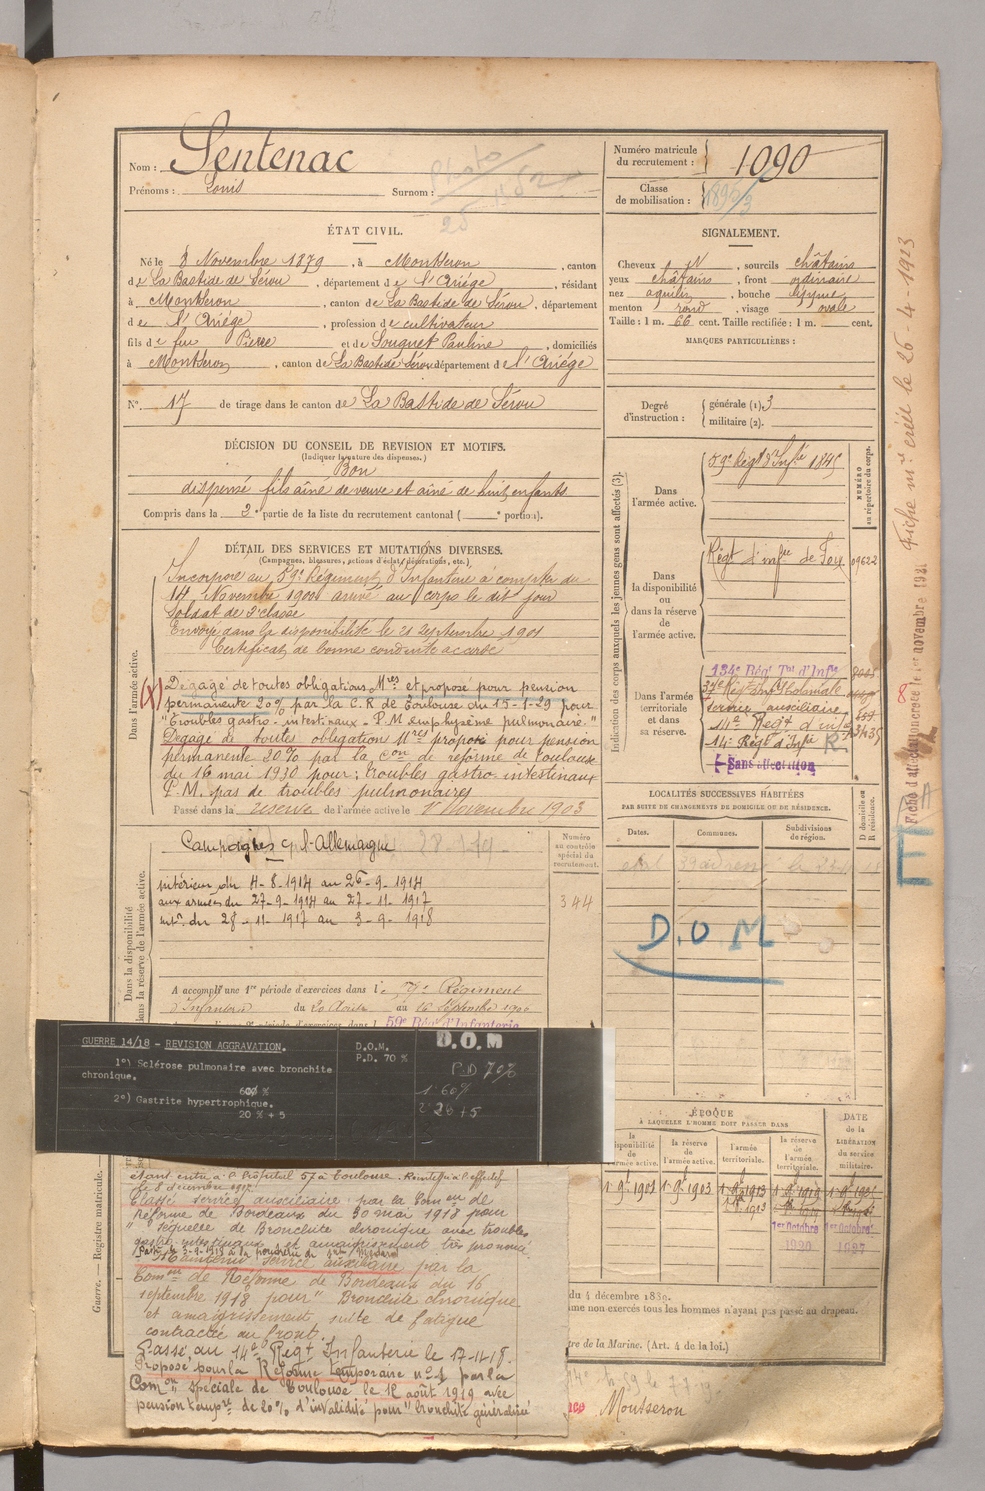 Nom : Sentenac
Prénoms : Louis Surnom :
Photo
Numéro matricule du recrutement : 1090
Classe de mobilisation :
ÉTAT CIVIL.
Né le 8 Novembre 1879, à Montseron, canton
de La Bastide de Sérou, département de l'Ariége, résidant
à Montseron, canton de La Bastide de Sérou, département
de l'Ariége, profession de cultivateur
fils de feu Pierre et de Souquet Pauline, domiciliés
à Montseron, canton de La Bastide Sérou département de l'Ariége
N° 17 de tirage dans le canton de La Bastide de Sérou
SIGNALEMENT.
Cheveux N, sourcils châtains
yeux châtains, front ordinaire
nez aquilin, bouche moyenne
menton rond, visage ovale
Taille : 1 m. 66 cent. Taille rectifiée : 1 m. cent.
MARQUES PARTICULIÈRES :
Degré d'instruction : générale (1). 3
militaire (2).
DÉCISION DU CONSEIL DE REVISION ET MOTIFS.
(Indiquer la nature des dispenses.)
Bon
dispensé fils aîné de veuve et aîné de huit enfants
Compris dans la 2e partie de la liste du recrutement cantonal ( e portion).
DÉTAIL DES SERVICES ET MUTATIONS DIVERSES.
(Campagnes, blessures, actions d'éclat, décorations, etc.)
Dans l'armée active.
Incorporé au 59e Régiment d'Infanterie à compter du
14 Novembre 1900 arrivé au corps le dit jour
Soldat de 2e classe
Envoyé dans la disponibilité le 21 Septembre 1901
Certificat de bonne conduite accordé
(X) Dégagé de toutes obligations Mres et proposé pour pension
permanente 20% par la C.R de Toulouse du 15-1-29 pour
"Troubles gastro-intestinaux - P.M emphysème pulmonaire."
Dégagé de toutes obligation Mres proposé pour pension
permanente 20% par la Con de réforme de Toulouse
du 16 mai 1930 pour : troubles gastro-intestinaux
P.M. pas de troubles pulmonaires
Passé dans la réserve de l'armée active le 1er Novembre 1903
Indication des corps auxquels les jeunes gens sont affectés (3).
NUMÉRO au répertoire du corps.
Dans l'armée active. 59e Régt d'Infie 1845
Dans la disponibilité ou dans la réserve de l'armée active. Régt d'infie de Foix 09622
Dans l'armée territoriale et dans sa réserve.
134e Régt Tal d'Infie
37e Régt Inf Coloniale
Service auxiliaire
14e Regt d'inf
14e Régt d'Infie
Sans affectation
Fiche mre créée le 26-4-1923
Fiche d'affectation créée le 1er novembre
Dans la disponibilité
dans la réserve de l'armée active.
Campagnes c/ l'Allemagne
intérieur du 4-8-1914 au 26-9-1914
aux armées du 27-9-1914 au 27-11-1917
intr du 28-11-1917 au 3-9-1918
Numéro au contrôle spécial du recrutement.
344
A accompli une 1re période d'exercices dans le 59e Régiment
d'Infanterie du 20 Août au 16 Septembre
59e Régt d'Infanterie
LOCALITÉS SUCCESSIVES HABITÉES
PAR SUITE DE CHANGEMENTS DE DOMICILE OU DE RÉSIDENCE.
Dates. Communes. Subdivisions de région. D domicile ou R résidence.
D.O.M
GUERRE 14/18 - REVISION AGGRAVATION.
1°) Sclérose pulmonaire avec bronchite
chronique.
60 %
2°) Gastrite hypertrophique.
20 % + 5
D.O.M.
P.D. 70 %
D.O.M
P.D 70%
1° 60%
2° 20 + 5
ÉPOQUE
À LAQUELLE L'HOMME DOIT PASSER DANS
la disponibilité de l'armée active. la réserve de l'armée active. l'armée territoriale. la réserve de l'armée territoriale. DATE de la LIBÉRATION du service militaire.
1er Octobre 1920
1er Octobre 1927
Guerre. — Registre matricule.
étant entré à l'hôpital 57 à Toulouse.
Classé service auxiliaire par la Comon de
Réforme de Bordeaux du 30 mai 1918 pour
"Séquelle de Bronchite chronique avec troubles
gastro-intestinaux et amaigrissement très prononcé
Maintenu service auxiliaire par la
Comon de Réforme de Bordeaux du 16
septembre 1918 pour "Bronchite chronique
et amaigrissement suite de fatigue
contractée au front.
Passé au 14e Régt Infanterie le 17-11-18.
Proposé pour la Réforme temporaire n°1 par la
Comon Spéciale de Toulouse le 12 août 1919 avec
pension tempre de 20% d'invalidité pour "bronchite généralisée
du 4 décembre 1839.
me non exercés tous les hommes n'ayant pas passé au drapeau.
tre de la Marine. (Art. 4 de la loi.)
Montseron